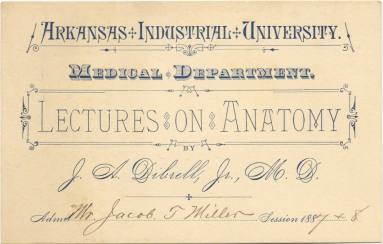 ARKANSAS INDUSTRIAL UNIVERSITY.
MEDICAL DEPARTMENT.
LECTURES ON ANATOMY
BY
J. A. Dibrell, Jr., M. D.
Admit Mr. Jacob T Miller Session 1887 & 8